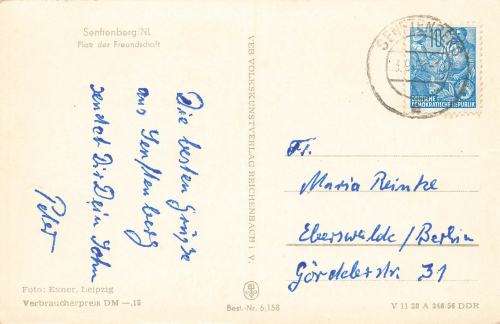 Senftenberg/NL
Platz der Freundschaft
Die besten Grüße
aus Senftenberg
sendet Dir Dein Sohn
Peter
Foto: Exner, Leipzig
Verbraucherpreis DM —.15
VEB VOLKSKUNSTVERLAG REICHENBACH I. V.
Best.-Nr. 6/158
SENFTENBERG
10
DEUTSCHE
DEMOKRATISCHE REPUBLIK
Fr.
Maria Reinke
Eberswalde/Berlin
Gördelerstr. 31
V 11 28 A 248/56 DDR